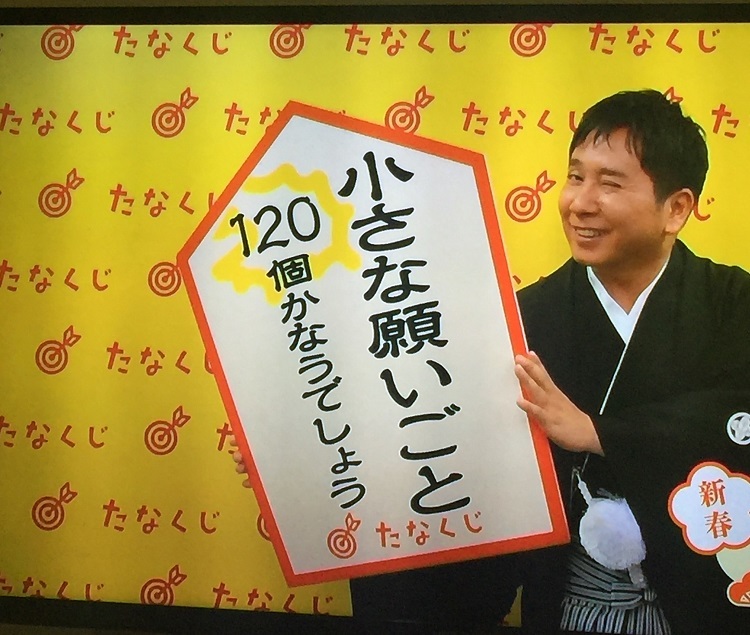 たなくじ
たなくじ
たなくじ
たなくじ
たなくじ
たなくじ
た
たなくじ
じ
たなくじ
たなくじ
たなくじ
たなくじ
たなくじ
たなくじ
小さな願いごと
120個かなうでしょう
たなくじ
新春